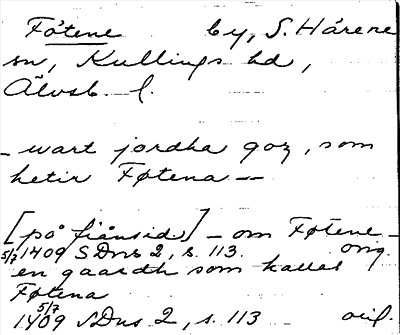 Føtene by, S. Härene
sn, Kullings hd,
Älvsb. l.
– wart jordha goz, som
hetir Føtena –
[på frånsid] – om Føtene –
5/7 1409 SDns 2, s. 113. orig.
en gaardh som kallas
Føtena
5/7
1409 SDns 2, s. 113 orig.